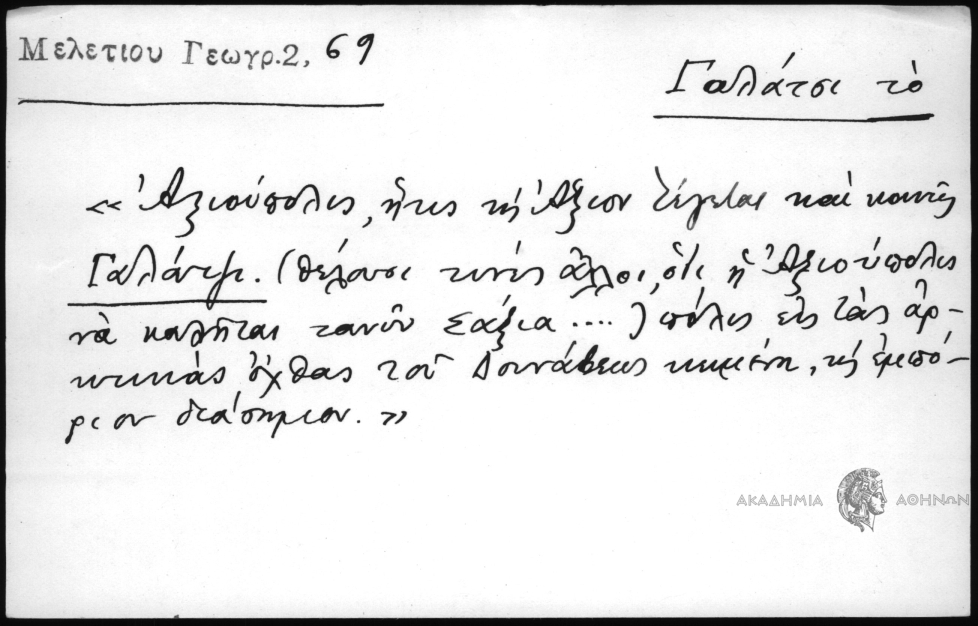 Μελετίου Γεωγρ.2, 69
Γαλάτσι τὸ
« Ἀξιούπολις, ἥτις κỳ Ἄξιον λέγεται καὶ κοινῶς
Γαλάντζι. (θέλουσι τινὲς ἄλλοι, ὅτι ἡ Ἀξιούπολις
νὰ καλῆται τανῦν Σάξια ....) πόλις εἰς τὰς ἀρ-
κτικὰς ὄχθας τοῦ Δουνάβεως κειμένη, κỳ ἐμπό-
ριον διάσημον. »
ΑΚΑΔΗΜΙΑ ΑΘΗΝΩΝ